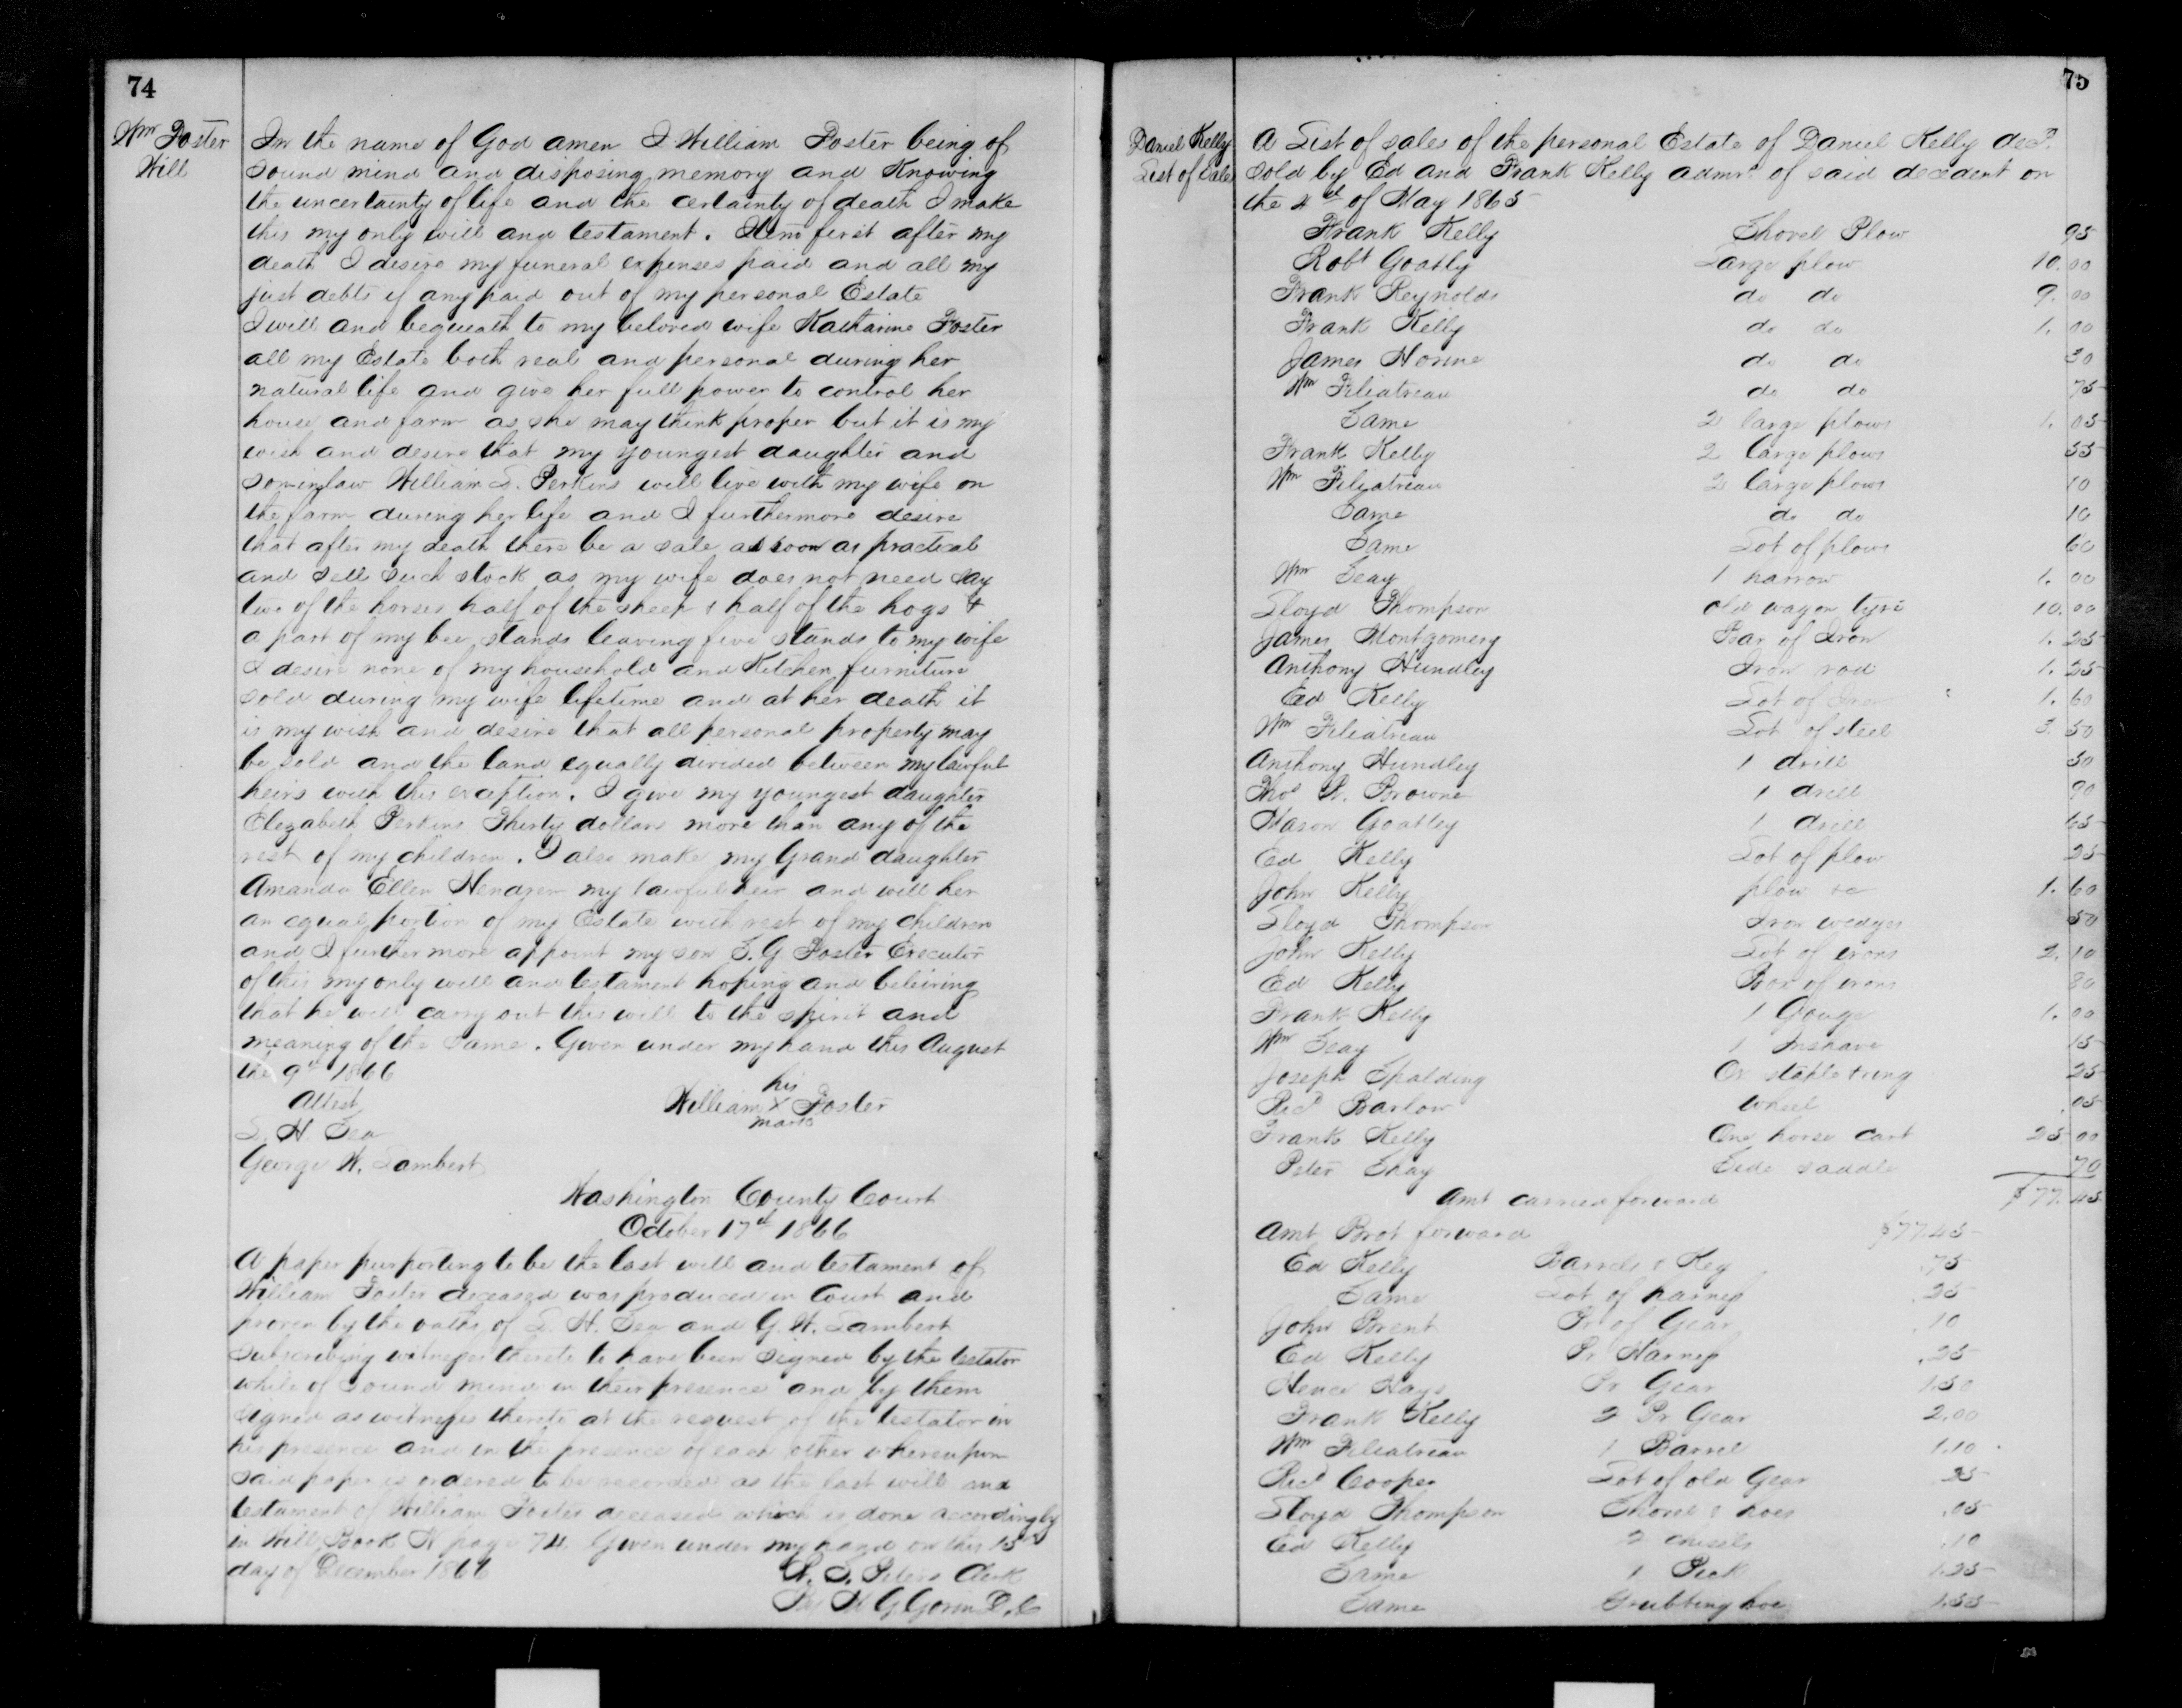 74
Wm Foster
Will
In the name of God amen I William Foster being of
sound mind and disposing memory and Knowing
the uncertainty of life and the certainty of death I make
this my only will and testament. Item first after my
death I desire my funeral expenses paid and all my
just debts if any paid out of my personal Estate
I will and bequeath to my beloved wife Katharine Foster
all my Estate both real and personal during her
natural life and give her full power to control her
house and farm as she may think proper but it is my
wish and desire that my youngest daughter and
soninlaw William S. Perkins will live with my wife on
the farm during her life and I furthermore desire
that after my death there be a sale as soon as practical
and sell such stock as my wife does not need say
two of the horses half of the sheep & half of the hogs &
a part of my bee stands leaving five stands to my wife
I desire none of my household and Kitchen furniture
sold during my wife lifetime and at her death it
is my wish and desire that all personal property may
be sold and the land equally divided between my lawful
heirs with this exception. I give my youngest daughter
Elezabeth Perkins Thirty dollars more than any of the
rest of my children. I also make my Grand daughter
Amanda Ellen Hendren my lawful heir and will her
an equal portion of my Estate with rest of my children
and I further more appoint my son T. G Foster Executor
of this my only will and testament hoping and beleiving
that he will carry out this will to the spirit and
meaning of the same. Given under my hand this August
the 9th 1866
his
Attest
William X Foster
mark
S. H. Sea
George W. Lambert
Washington County Court
October 17th 1866
A paper purporting to be the last will and testament of
William Foster deceased was produced in Court and
proven by the oaths of S. H. Sea and G. W. Lambert
subscribing witnesses thereto to have been signed by the testator
while of sound mind in their presence and by them
signed as witnesses thereto at the request of the testator in
his presence and in the presence of each other whereupon
said paper is ordered to be recorded as the last will and
testament of William Foster deceased which is done accordingly
in Will Book N page 74 Given under my hand on this 15th
day of December 1866
Peters Clerk
75
Daniel Kelly
List of Sales
A List of sales of the personal Estate of Daniel Kelly decd.
sold by Ed and Frank Kelly admrs of said decedent on
the 4th of May 1865
Frank Kelly Shovel Plow 95
Robt Goatly Large plow 10.00
Frank Reynolds do do 9.00
Frank Kelly do do 1.00
James Horine do do 30
Wm Filiatreau do do 75
Same 2 large plows 1.05
Frank Kelly 2 large plows 55
Wm Filiatreau 2 large plows 10
Same do do 10
Same Lot of plows 60
Wm Seay 1 harrow 1.00
Lloyd Thompson old wagon tyre 10.00
James Montgomery Bar of Iron 1.25
Anthony Hundley Iron rod 1.25
Ed Kelly Lot of Iron 1.60
Wm Filiatreau Lot of steel 3.50
Anthony Hundley 1 drill 50
Thos Browne 1 drill 90
Mason Goatley 1 drill 65
Ed Kelly Lot of plow 25
John Kelly plow &c 1.60
Lloyd Thompson Iron wedges 50
John Kelly Lot of irons 2.10
Ed Kelly Box of irons 80
Frank Kelly 1 Gouge 1.00
Wm Seay 1 Inshave 15
Joseph Spalding Ox staple & ring 25
Ricd Barlow Wheel .05
Frank Kelly One horse cart 25 00
Peter Shay Side saddle 70
Amt carried forward $77.45
Amt Brot forward $77.45
Ed Kelly Barrels & Keg .75
Same Lot of harness .25
John Brent Pr of Gear .10
Ed Kelly Pr Harness .25
Hence Hays Pr Gear 1.50
Frank Kelly 2 Pr Gear 2.00
Wm Filiatreau 1 Barrel 1.10
Ricd Cooper Lot of old Gear .25
Lloyd Thompson Shovel & hoes .05
Ed Kelly 2 chisels .10
Same 1 Pick 1.25
Same Grubbing hoe 1.55